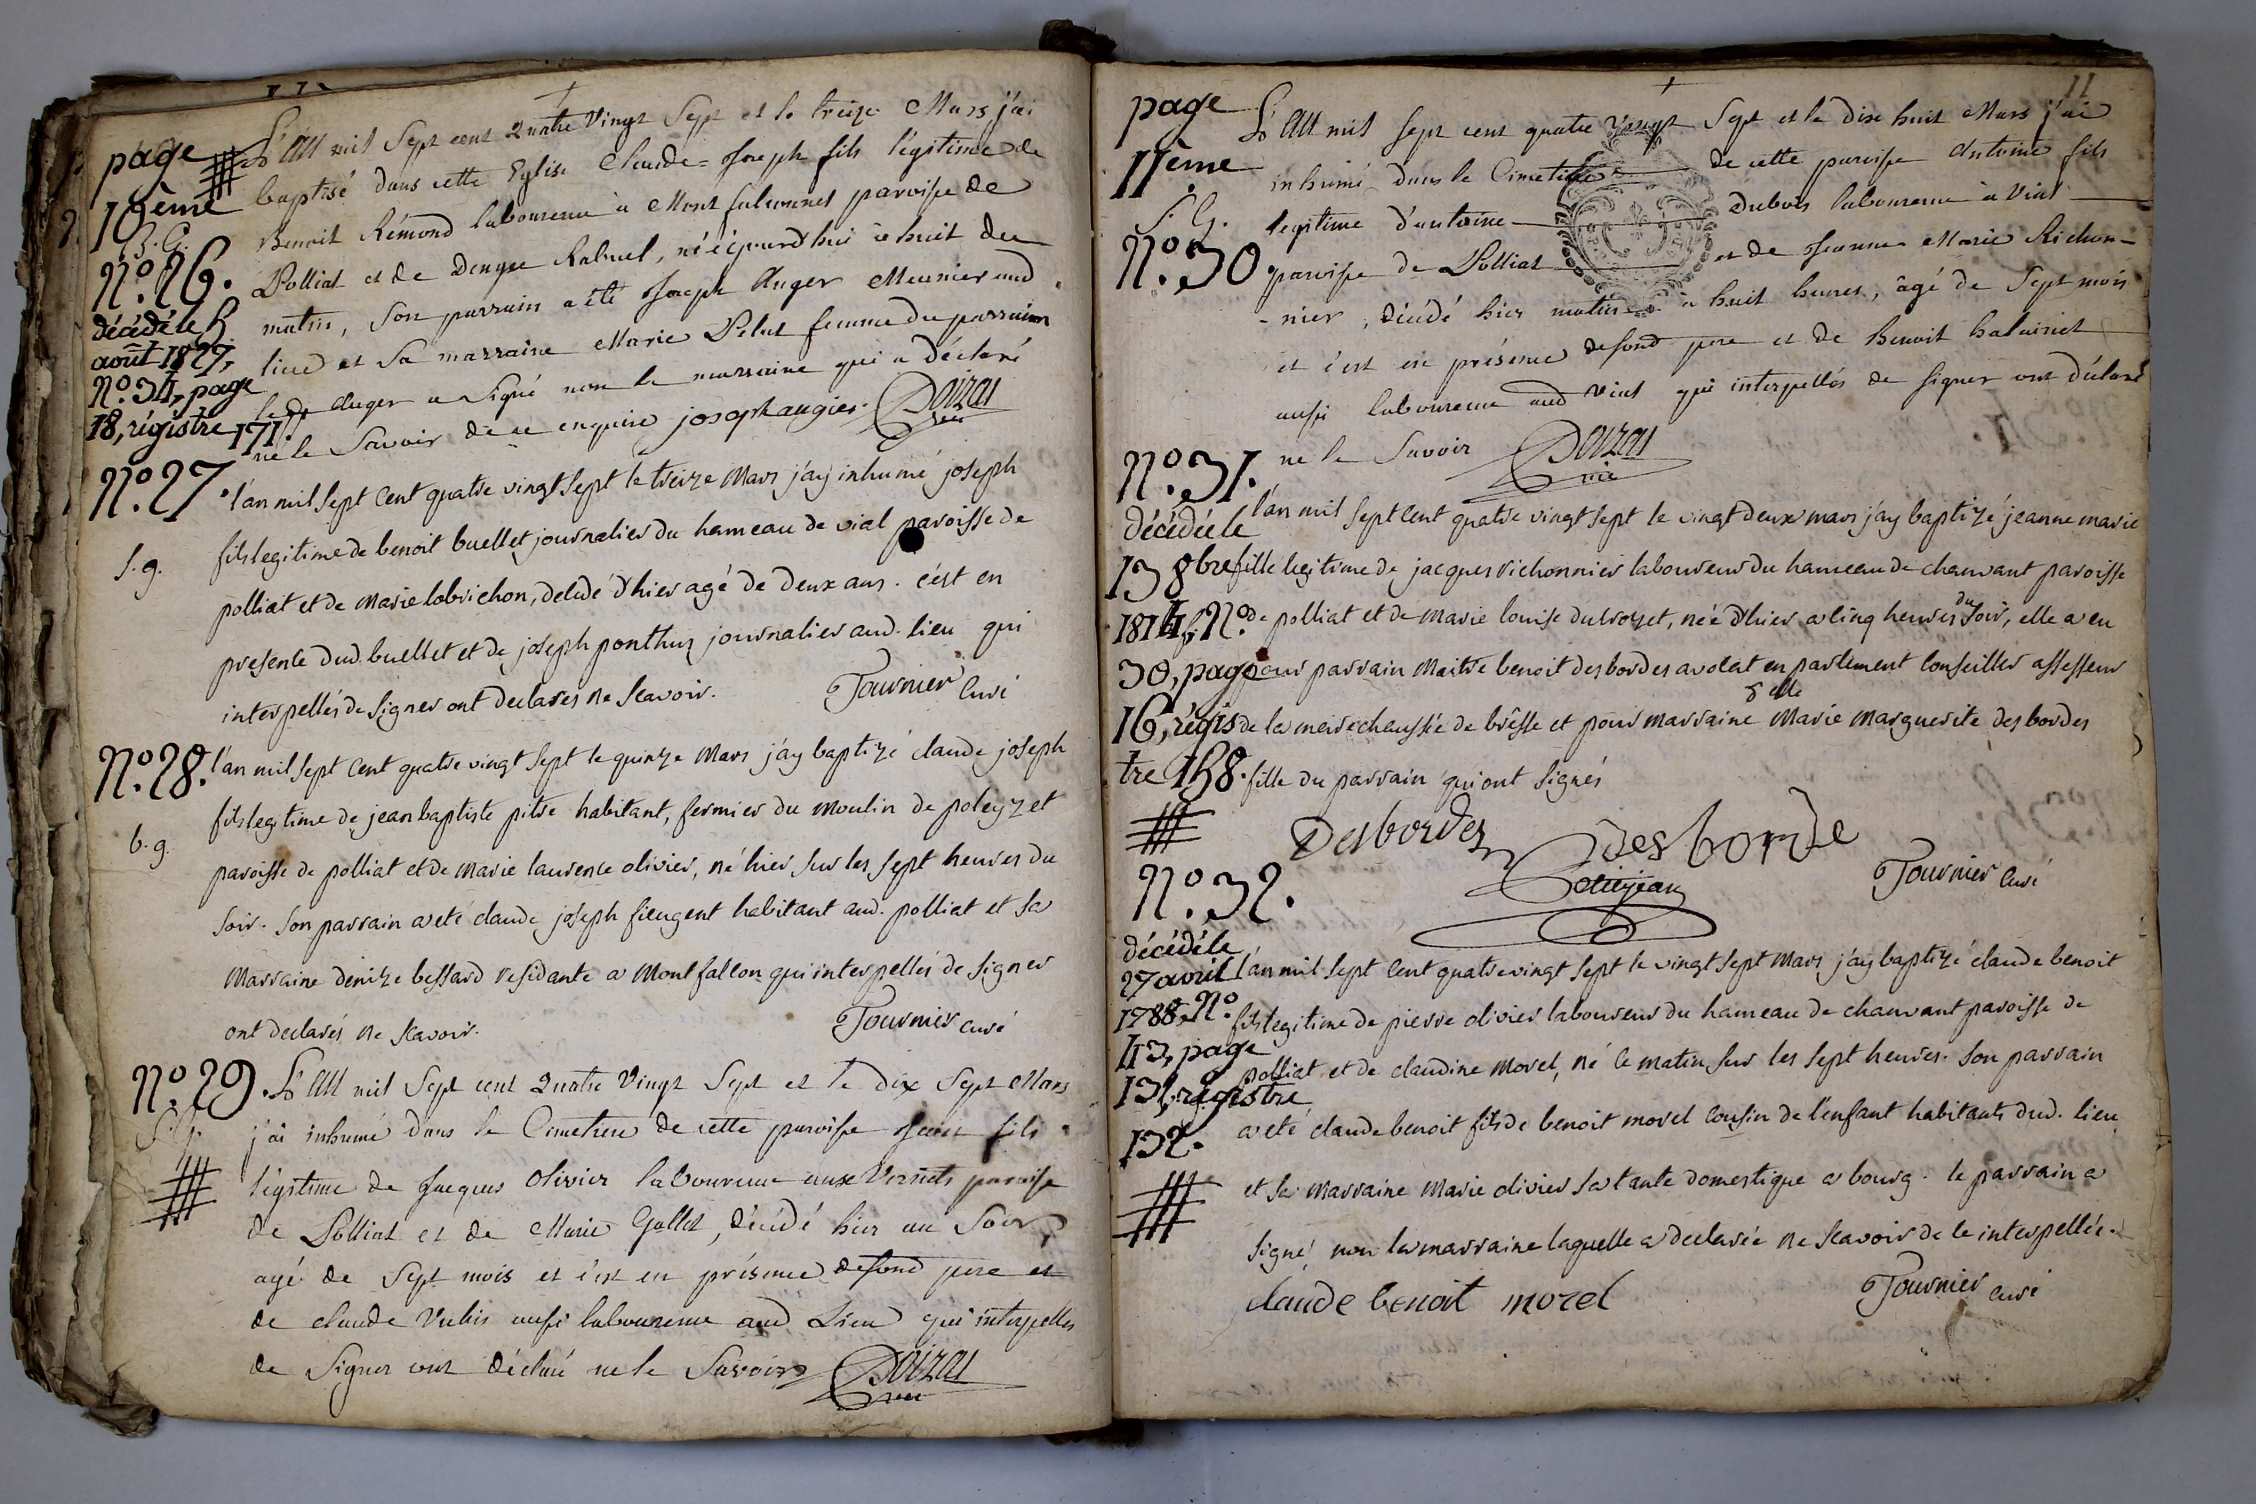 page
10ème
S. G.
N.º 26.
décédé le 5
août 1827,
N.º 34, page
18, régistre 171.
L'An mil Sept cent Quatre Vingt Sept et le treize Mars j'ai
baptisé dans cette Eglise Claude-Joseph fils légitime de
Benoit Rémond laboureur à Montfalconnet paroisse de
Polliat et de Denyse Rabuel, né aujourd'hui à huit du
matin, son parrain a été Joseph Auger Meunier aud
lieu et sa marraine Marie Pelut femme du parrain
le d. Auger a signé non la marraine qui a déclaré
ne le savoir de ce enquise joseph augier. Doizat
N.º 27.
s. g.
l'an mil sept cent quatre vingt sept le treize mars j'ay inhumé joseph
fils legitime de benoit buellet journalier du hameau de vial paroisse de
polliat et de marie lobrichon, decedé d'hier agé de deux ans. c'est en
presence dud. buellet et de joseph ponthuz journalier aud. lieu qui
interpellés de signer ont declarés ne scavoir. Tournier curé
N.º 28.
b. g.
l'an mil sept cent quatre vingt sept le quinze mars j'ay baptizé claude joseph
fils legitime de jean baptiste pitre habitant, fermier du moulin de poleyzet
paroisse de polliat et de marie laurence olivier, né hier sur les sept heures du
soir. son parrain a eté claude joseph fieugent habitant aud. polliat et sa
marraine denize bessard residante a montfalcon qui interpellés de signer
ont declarés ne scavoir. Tournier curé
N.º 29.
S. G.
L'An mil Sept cent Quatre Vingt Sept et le dix Sept Mars
j'ai inhumé dans le Cimetiere de cette paroisse Jean fils
légitime de Jacques Olivier laboureur aux Vernets paroisse
de Polliat et de Marie Gallet, décédé hier au Soir,
agé de Sept mois et c'est en présence desond pere et
de claude Vubis aussi laboureur aud Lieu qui interpellés
de Signer ont déclaré ne le Savoir Doizat
11
page
11ème
S. G.
N.º 30.
L'An mil sept cent quatre Vingt Sept et le dix huit Mars j'ai
inhumé dans le Cimetiere de cette paroisse Antoine fils
legitime d'antoine Dubois laboureur à Vial
paroisse de Polliat et de Jeanne Marie Richon-
-nier, décédé hier matin à huit heures, âgé de Sept mois
et c'est en présence desond pere et de Benoit halainet
aussi laboureur aud Vial qui interpellés de signer ont déclaré
ne le Savoir Doizat
N.º 31.
décédée le
13 8bre
1814, N.º
30, page
16, régis
tre 158.
l'an mil sept cent quatre vingt sept le vingt deux mars j'ay baptizé jeanne marie
fille legitime de jacques richonnier laboureur du hameau de chanvant paroisse
de polliat et de marie louise duvroyet, née d'hier a cinq heures du soir, elle a eu
pour parrain maitre benoit desbordes avocat en parlement conseiller assesseur
de la marechaussée de bresse et pour marraine delle marie marguerite desbordes
fille du parrain qui ont signés
Desbordes Desborde
Petitjean Tournier curé
N.º 32.
décédé le
27 avril
1788, N.º
43, page
13, régistre
132.
l'an mil sept cent quatre vingt sept le vingt sept mars j'ay baptizé claude benoit
fils legitime de pierre olivier laboureur du hameau de chanvant paroisse de
polliat et de claudine morel, né ce matin sur les sept heures. son parrain
a eté claude benoit fils de benoit morel cousin de l'enfant habitants dud. lieu
et sa marraine marie olivier sa tante domestique a bourg. le parrain a
signé non la marraine laquelle a declarée ne scavoir de ce interpellée.
claude benoit morel Tournier curé